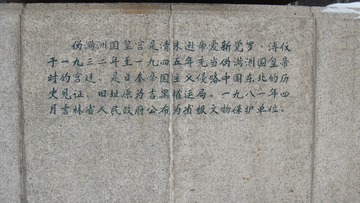 伪满洲国皇宫是清末逊帝爱新觉罗·溥仪
于一九三二年至一九四五年充当伪满洲国皇帝
时的宫廷。是日本帝国主义侵略中国东北的历
史见证。旧址原为吉黑榷运局。一九八一年四
月吉林省人民政府公布为省级文物保护单位。